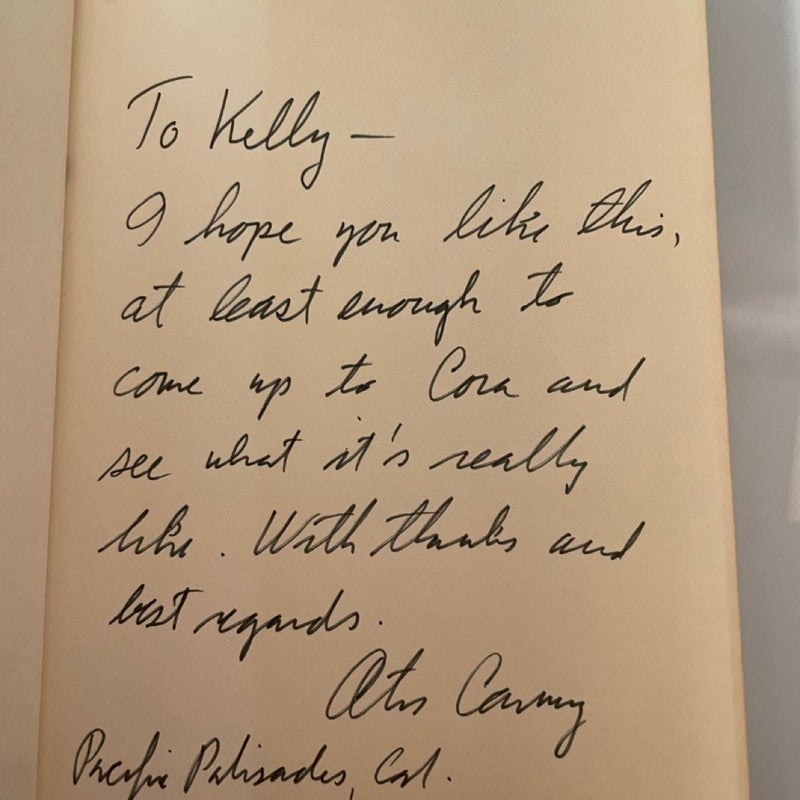 To Kelly —
I hope you like this,
at least enough to
come up to Cora and
see what it's really
like. With thanks and
best regards.
Otis Carney
Pacific Palisades, Cal.